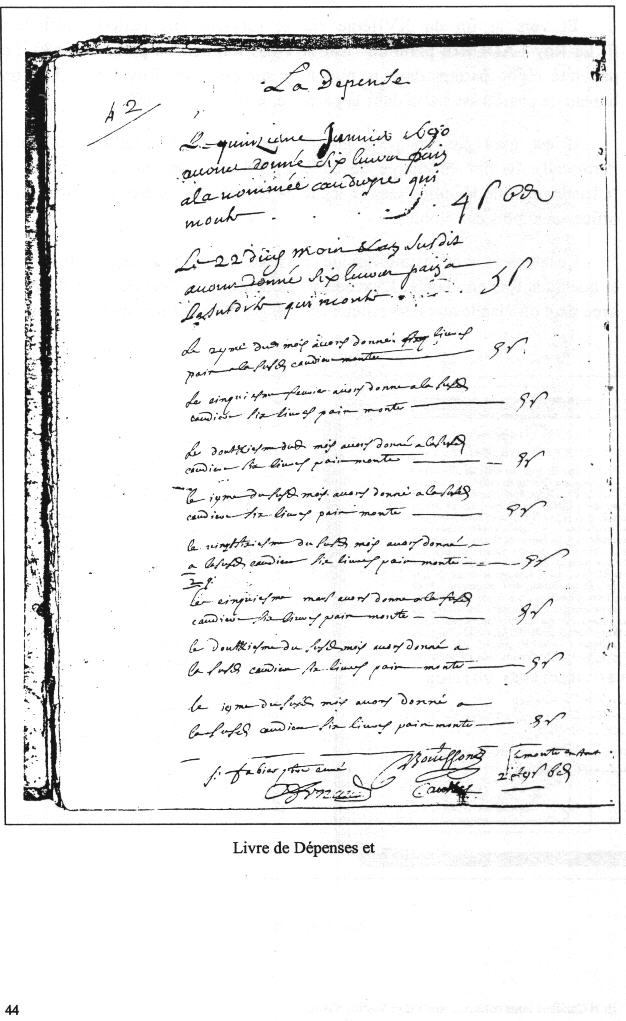 La Depense
42
Le quinzieme Janvier 1690
avons donné six livres pain
a la nommée caudiere qui
monte 4s 6d
Le 22 du mois susdit
avons donné six livres pain a
la susdite qui monte 5s
Le 29me dud mois avons donné livres
pain a la susd caudiere monte 5s
Le cinquiesme fevrier avons donne a la susd
caudiere six livres pain monte 5s
Le doutziesme dud mois avons donné a la susd
caudiere six livres pain monte 5s
le 19me du susd mois avons donné a la susd
caudiere six livres pain monte 5s
le vingtsixiesme du susd mois avons donné
a la susd caudiere six livres pain monte 5s
le cinquiesme mars avons donne a la susd
caudiere six livres pain monte 5s
le doutziesme du susd mois avons donné a
la susd caudiere six livres pain monte 5s
le 19me du susd mois avons donné a
la susd caudiere six livres pain monte 5s
monte en tout
Livre de Dépenses et
44